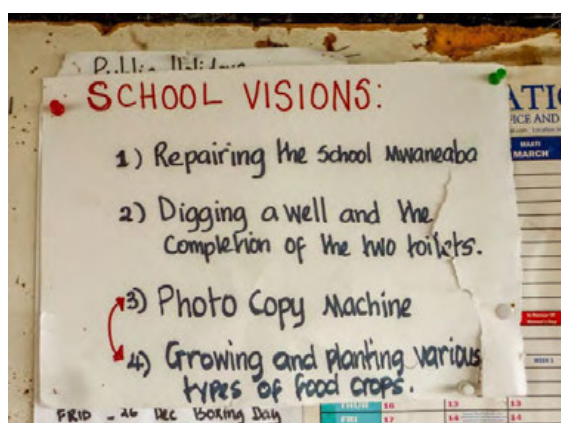 Public Holidays
SCHOOL VISIONS:
1) Repairing the School Mwaneaba
2) Digging a well and the
Completion of the two toilets.
3) Photo Copy Machine
4) Growing and planting various
types of food crops.
FRID - 26 Dec Boxing Day
ATIO
ICE AND
MAATI
MARCH
WEEK 1
THUR 16 13 13
FRI 17 14 14